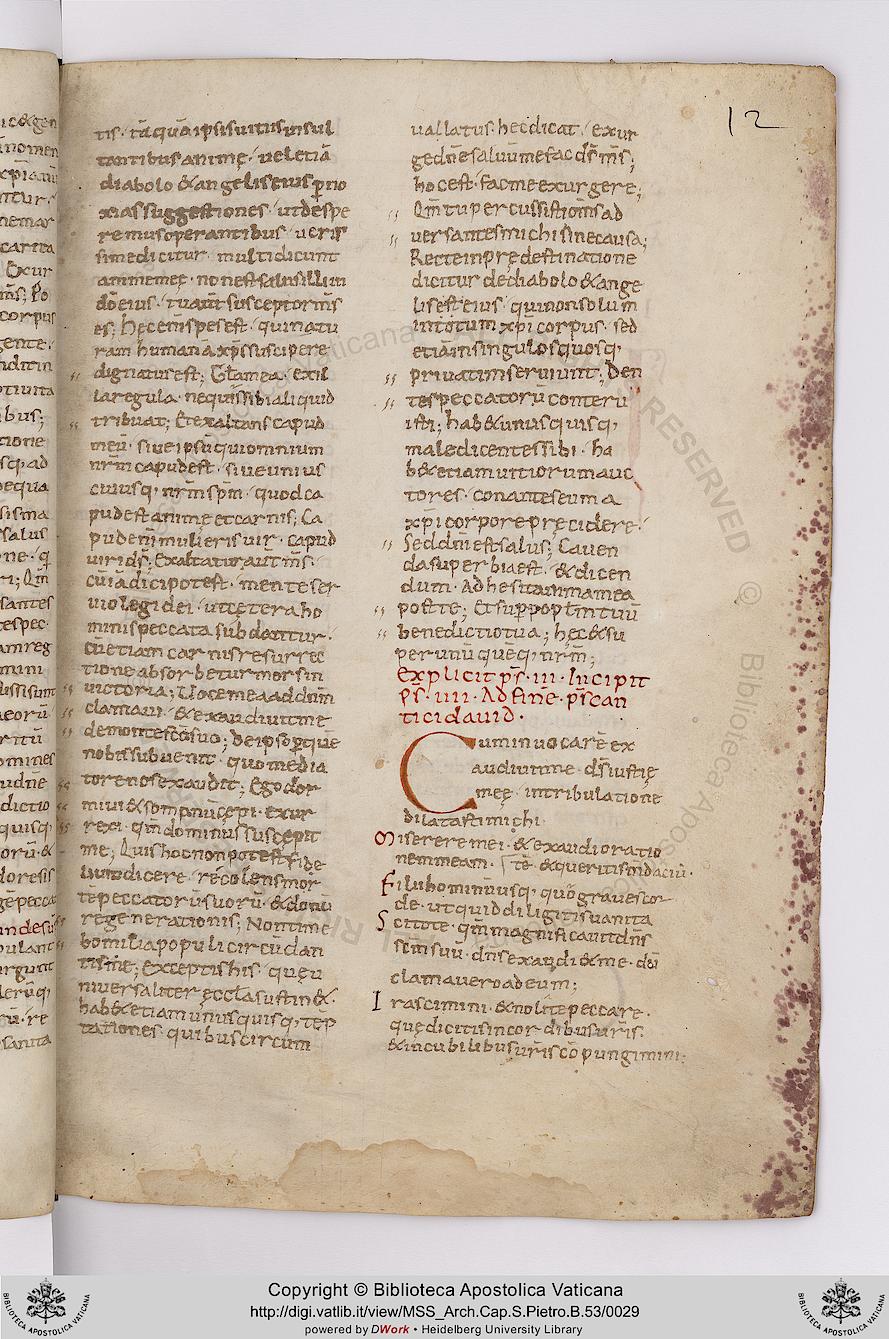 12
tis· tāquā ipsis uitiis insul
tantibus animę· uel etiā
diabolo & angelis eius ꝑ no
xias suggestiones· ut despe
remus operantibus· ueris
sime dicitur· multi dicunt
animę meę· non est salus illi in
dō eius· tu aut̄ susceptor m̄s
es; hęc eni spes est· qui natu
ram humanā xp̄s suscipere
dignatus est; Gl̄a mea· ex il
la regula· ne quis sibi aliquid
tribuat; Et exaltans capud
meū· siue ipsū qui omnium
nr̄m capud est· siue unius
cuiusq; nr̄m sp̄m· quod ca
pud est animę et carnis; Ca
pud eni mulieris uir· capud
uiri ds̄; Exaltatur aut̄ m̄s·
cū iā dici potest· mente ser
uio legi dei· ut cętera ho
minis peccata subdantur·
cū etiam carnis resurrec
tione absorbetur mors in
uictoria; Uoce mea ad dn̄m
clamaui· & exaudiuit me
de monte sc̄o suo; De ipso ꝑ quē
nobis subuenit· quo media
tore nos exaudit; Ego dor
miui & somnū cępi· exur
rexi· qm̄ dominus suscępit
me; Quis hoc non potest fide
liū dicere· recolens mor
tē peccatorū suorū· & donū
regenerationis; Non time
bo milia populi circūdan
tis me; exceptis his· quę u
niuersaliter ęccl̄a sustin&·
hab& etiam unusquisq; tēp
tationes quibus circum
uallatus· hęc dicat· exur
ge dn̄e saluum me fac ds̄ m̄s;
hoc est· fac me exurgere;
Qm̄ tu percussisti om̄s ad
uersantes michi sine causa;
Recte in prędestinatione
dicitur de diabolo & ange
lis est eius· qui non solum
in totum xp̄i corpus· sed
etiā in singulos quosq;
priuatim seruiunt; Den
tes peccatorū conteru
isti; hab& unusquisq;
maledicentes sibi· ha
b& etiam uitiorum auc
tores· conantes eum a
xp̄i corpore prę cidere·
Sed dn̄i est salus; Cauen
da superbia est· & dicen
dum· Adhesit anima mea
post te; Et suꝑ pop̄lm tuū
benedictio tua; hęc & su
per unū quęq; nr̄m;
Explicit ps̄· iii· Incipit
ps̄· iiii· Ad finē· ps̄ can
tici dauid·
Cum inuocarē ex
audiuit me· ds̄ iustię
meę· in tribulatione
dilatasti michi·
Miserere mei· & exaudi oratio
nem meam·
Filii hominū usq; quo graues cor
de· ut quid diligitis uanita
Scitote· qm̄ magnificauit dn̄s
sc̄m suū· dn̄s exaudi& me· dū
clamauero ad eum;
Irascimini· & nolite peccare·
quę dicitis in cordibus uris̄·
& in cubilibus uris̄ cōpungimini;
Copyright © Biblioteca Apostolica Vaticana
http://digi.vatlib.it/view/MSS_Arch.Cap.S.Pietro.B.53/0029
powered by DWork • Heidelberg University Library
BIBLIOTECA APOSTOLICA VATICANA
BIBLIOTECA APOSTOLICA VATICANA